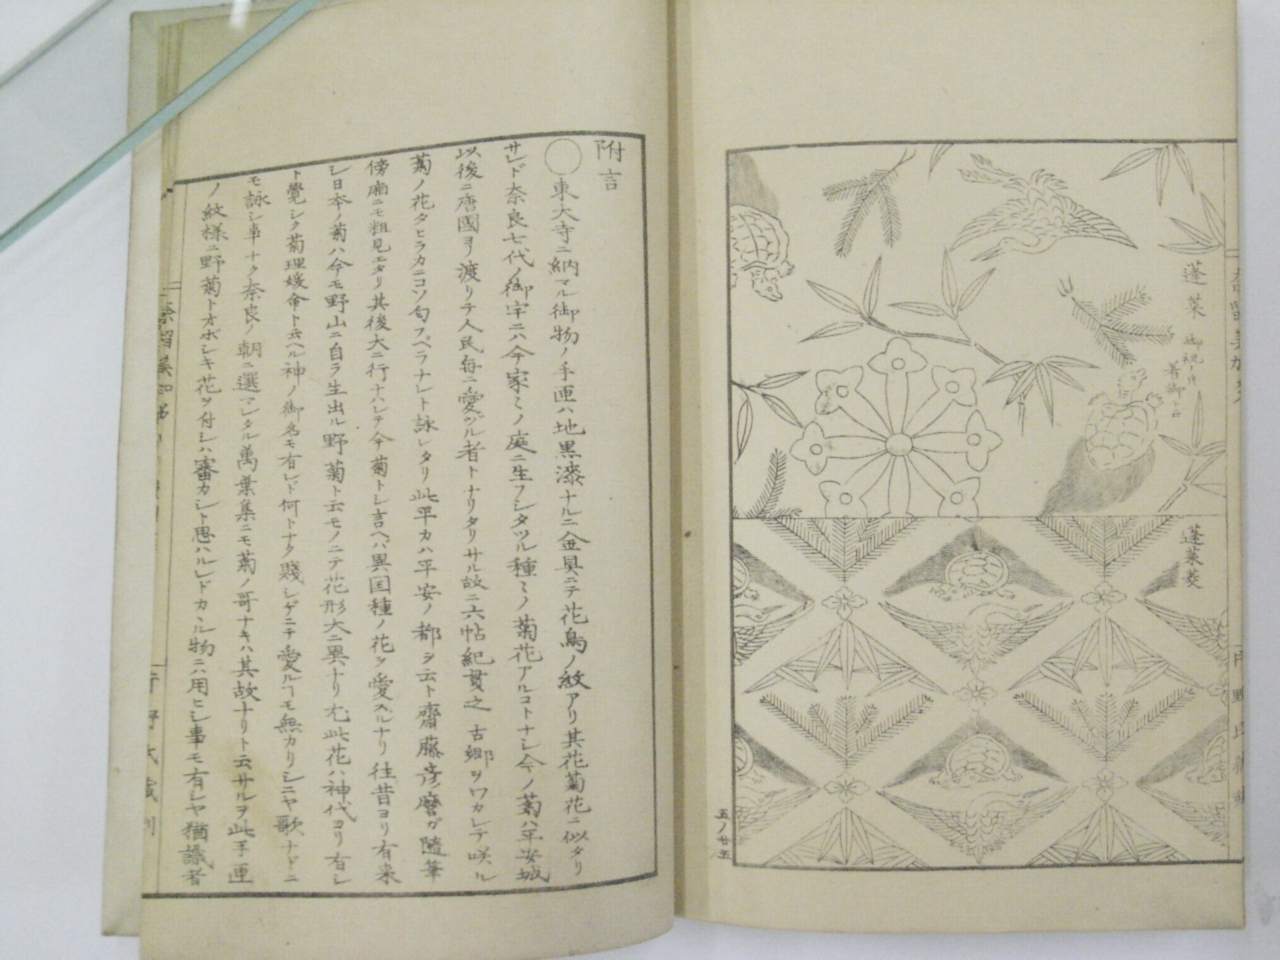 蓬莱
御祝ノ時
著御ノ品
蓬莱菱
五ノ廿五
附言
◯東大寺ニ納マル御物ノ手匣ハ地黒漆ナルニ金具ニテ花鳥ノ紋アリ其花菊花ニ似タリ
サレド奈良七代ノ御宇ニハ今家々ノ庭ニ生フシタツル種々ノ菊花アルコトナシ今ノ菊ハ平安城
以後ニ唐國ヨリ渡リテ人民毎ニ愛ヅル者トナリタリサル故ニ六帖紀貫之 古郷ヲワカレテ咲ル
菊ノ花タヒラカニコソ匂フベラナレト詠レタリ此平カハ平安ノ都ヲ云ト齋藤彦麿ガ随筆
傍廂ニモ粗見エタリ其後大ニ行ナハレテ今菊トシ言ヘバ異国種ノ花ヲ愛スルナリ往昔ヨリ有来
シ日本ノ菊ハ今モ野山ニ自ラ生出ル野菊ト云モノニテ花形大ニ異ナリ尤此花ハ神代ヨリ有シ
ト覺シク菊理媛命ト云ヘル神ノ御名モ有レド何トナク賤シゲニテ愛ルヿモ無カリシニヤ歌ナドニ
モ詠シ事ナク奈良ノ朝ニ選マレタル萬葉集ニモ菊ノ哥ナキハ其故ナリト云サルヲ此手匣
ノ紋様ニ野菊トオボシキ花ヲ付シハ審カシト思ハルレドカヽル物ニハ用ヒシ事モ有シヤ猶識者